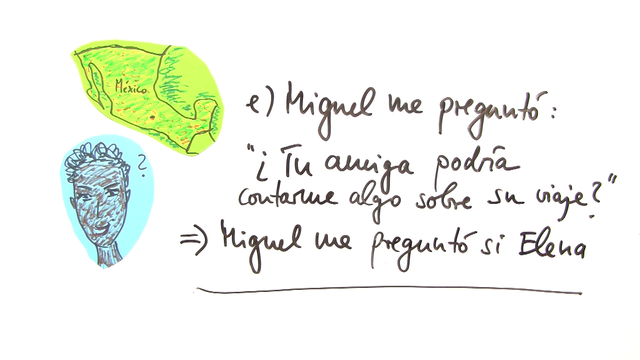 México
?
e) Miguel me preguntó:
"¿Tu amiga podría
contarme algo sobre su viaje?"
=> Miguel me preguntó si Elena